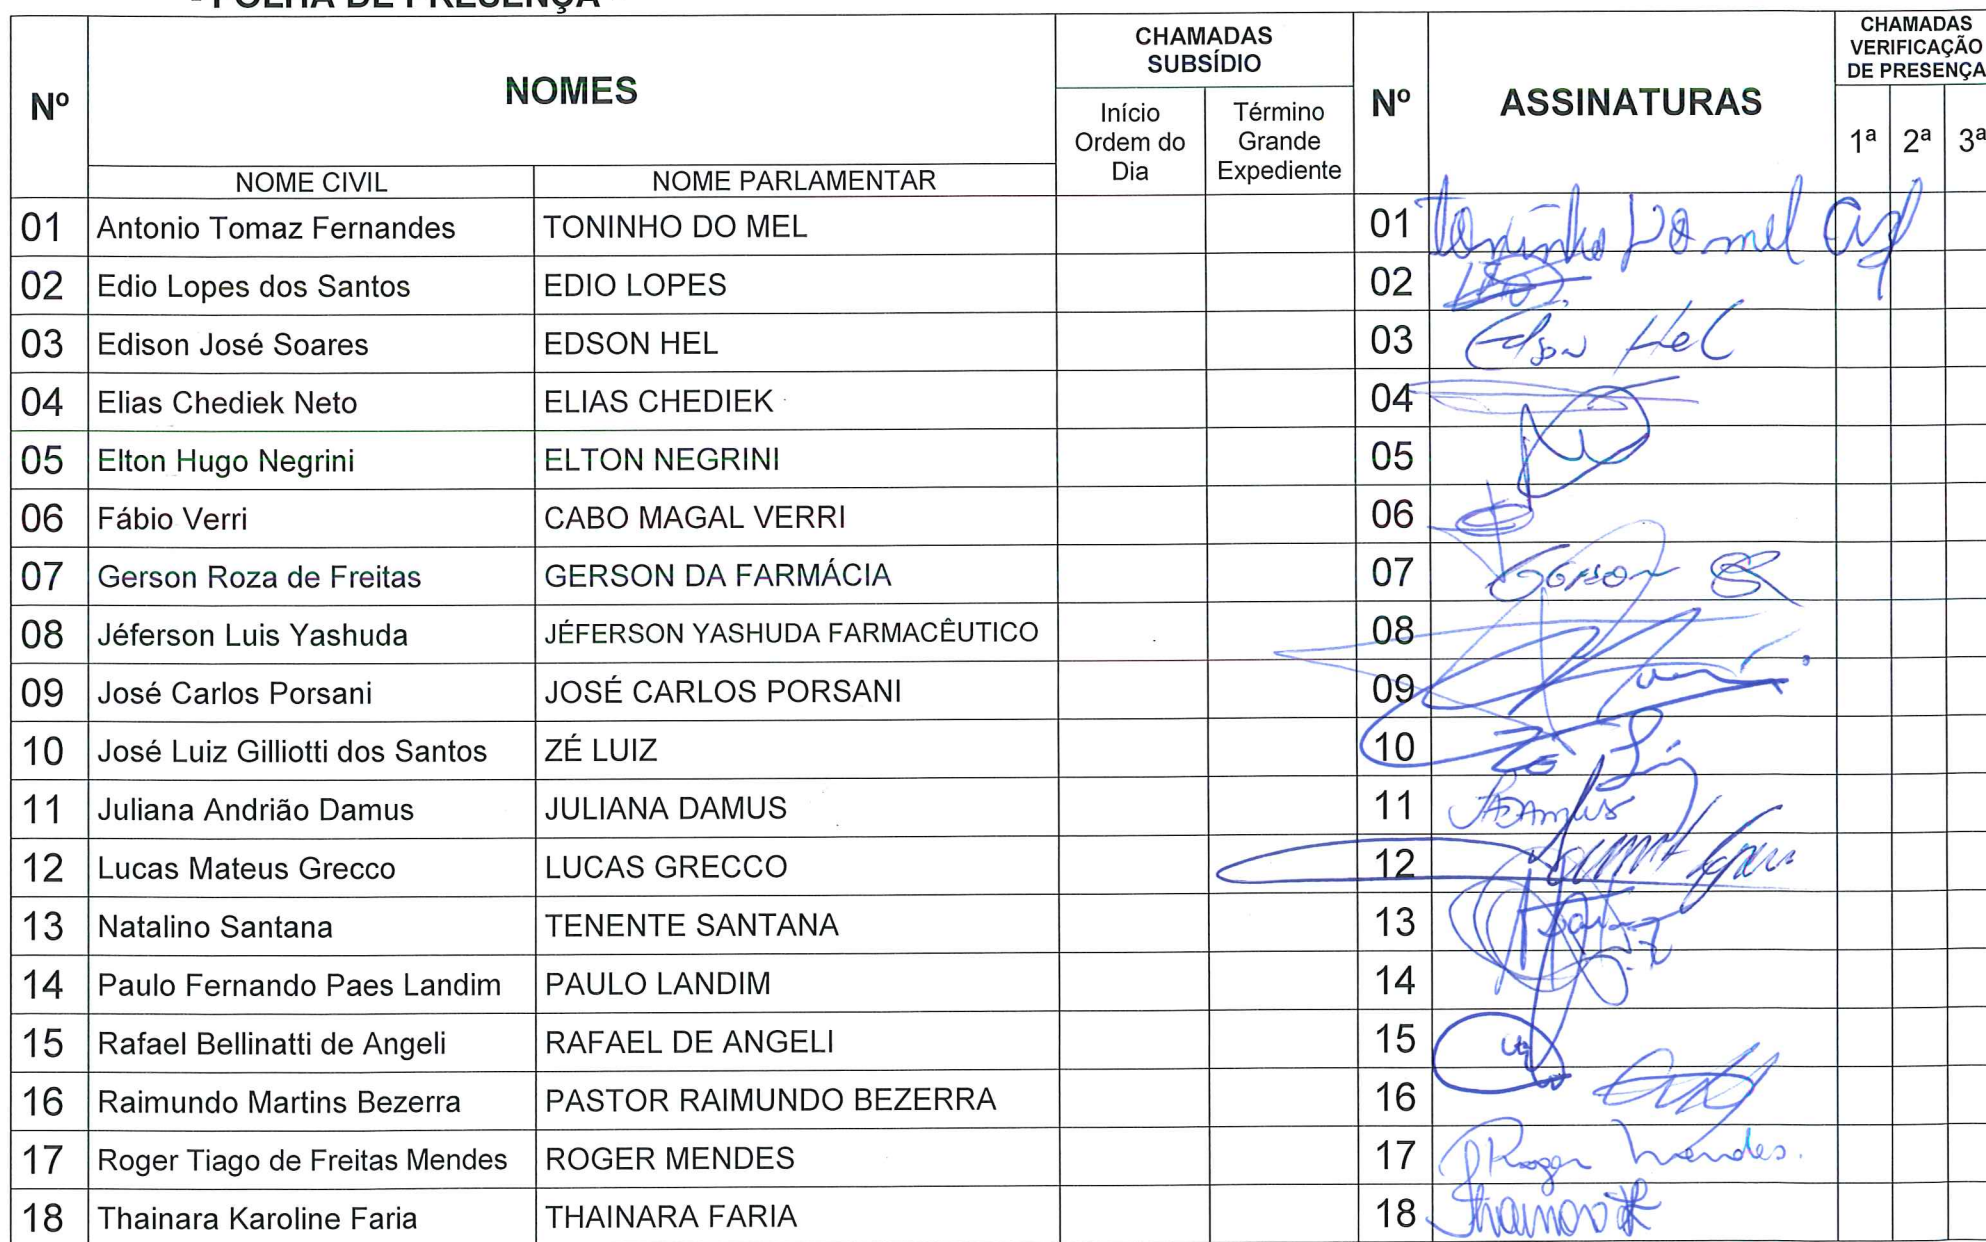 - FOLHA DE PRESENÇA
Nº NOMES CHAMADAS SUBSÍDIO Nº ASSINATURAS CHAMADAS VERIFICAÇÃO DE PRESENÇA
NOME CIVIL NOME PARLAMENTAR Início Ordem do Dia Término Grande Expediente 1ª 2ª 3ª
01 Antonio Tomaz Fernandes TONINHO DO MEL 01 Toninho Do mel
02 Edio Lopes dos Santos EDIO LOPES 02
03 Edison José Soares EDSON HEL 03 Edson Hel
04 Elias Chediek Neto ELIAS CHEDIEK 04
05 Elton Hugo Negrini ELTON NEGRINI 05
06 Fábio Verri CABO MAGAL VERRI 06
07 Gerson Roza de Freitas GERSON DA FARMÁCIA 07 Gerson
08 Jéferson Luis Yashuda JÉFERSON YASHUDA FARMACÊUTICO 08
09 José Carlos Porsani JOSÉ CARLOS PORSANI 09
10 José Luiz Gilliotti dos Santos ZÉ LUIZ 10
11 Juliana Andrião Damus JULIANA DAMUS 11 JADamus
12 Lucas Mateus Grecco LUCAS GRECCO 12
13 Natalino Santana TENENTE SANTANA 13
14 Paulo Fernando Paes Landim PAULO LANDIM 14
15 Rafael Bellinatti de Angeli RAFAEL DE ANGELI 15
16 Raimundo Martins Bezerra PASTOR RAIMUNDO BEZERRA 16
17 Roger Tiago de Freitas Mendes ROGER MENDES 17 Roger Mendes.
18 Thainara Karoline Faria THAINARA FARIA 18 Thainara